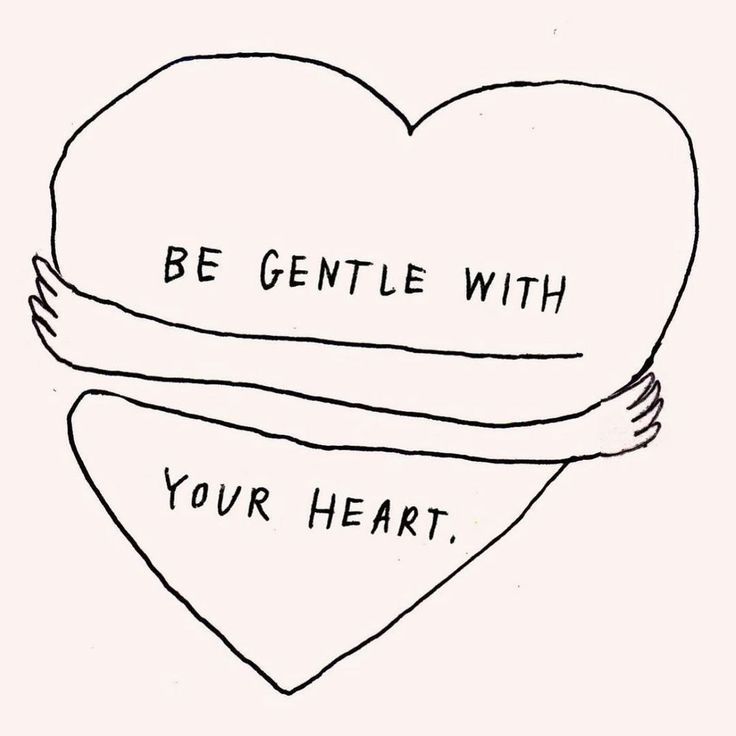 BE GENTLE WITH
YOUR HEART.